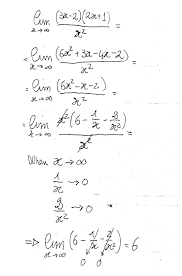 lim x→∞ (3x-2)(2x+1) / x² =
= lim x→∞ (6x²+3x-4x-2) / x² =
= lim x→∞ (6x²-x-2) / x² =
= lim x→∞ x²(6 - 1/x - 2/x²) / x² =
When x→∞
1/x → 0
2/x² → 0
=> lim x→∞ (6 - 1/x - 2/x²) = 6
0 0